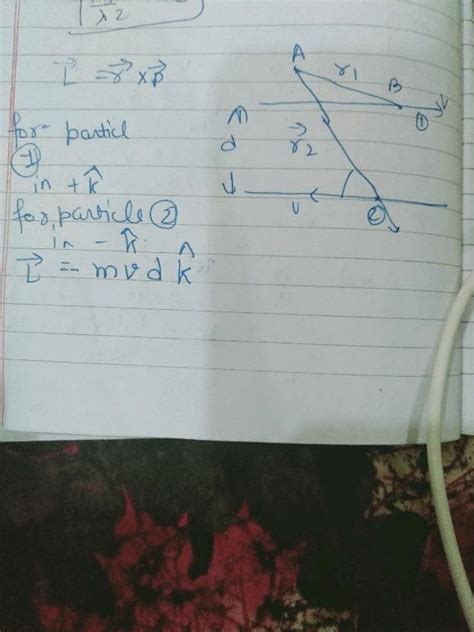 λ2
L⃗ = r⃗ x P⃗
for- particl
①
in + k̂
for, particle ②
in - k̂
L⃗ = - m v d k̂
A
r1
B
①
d
r⃗2
v
②